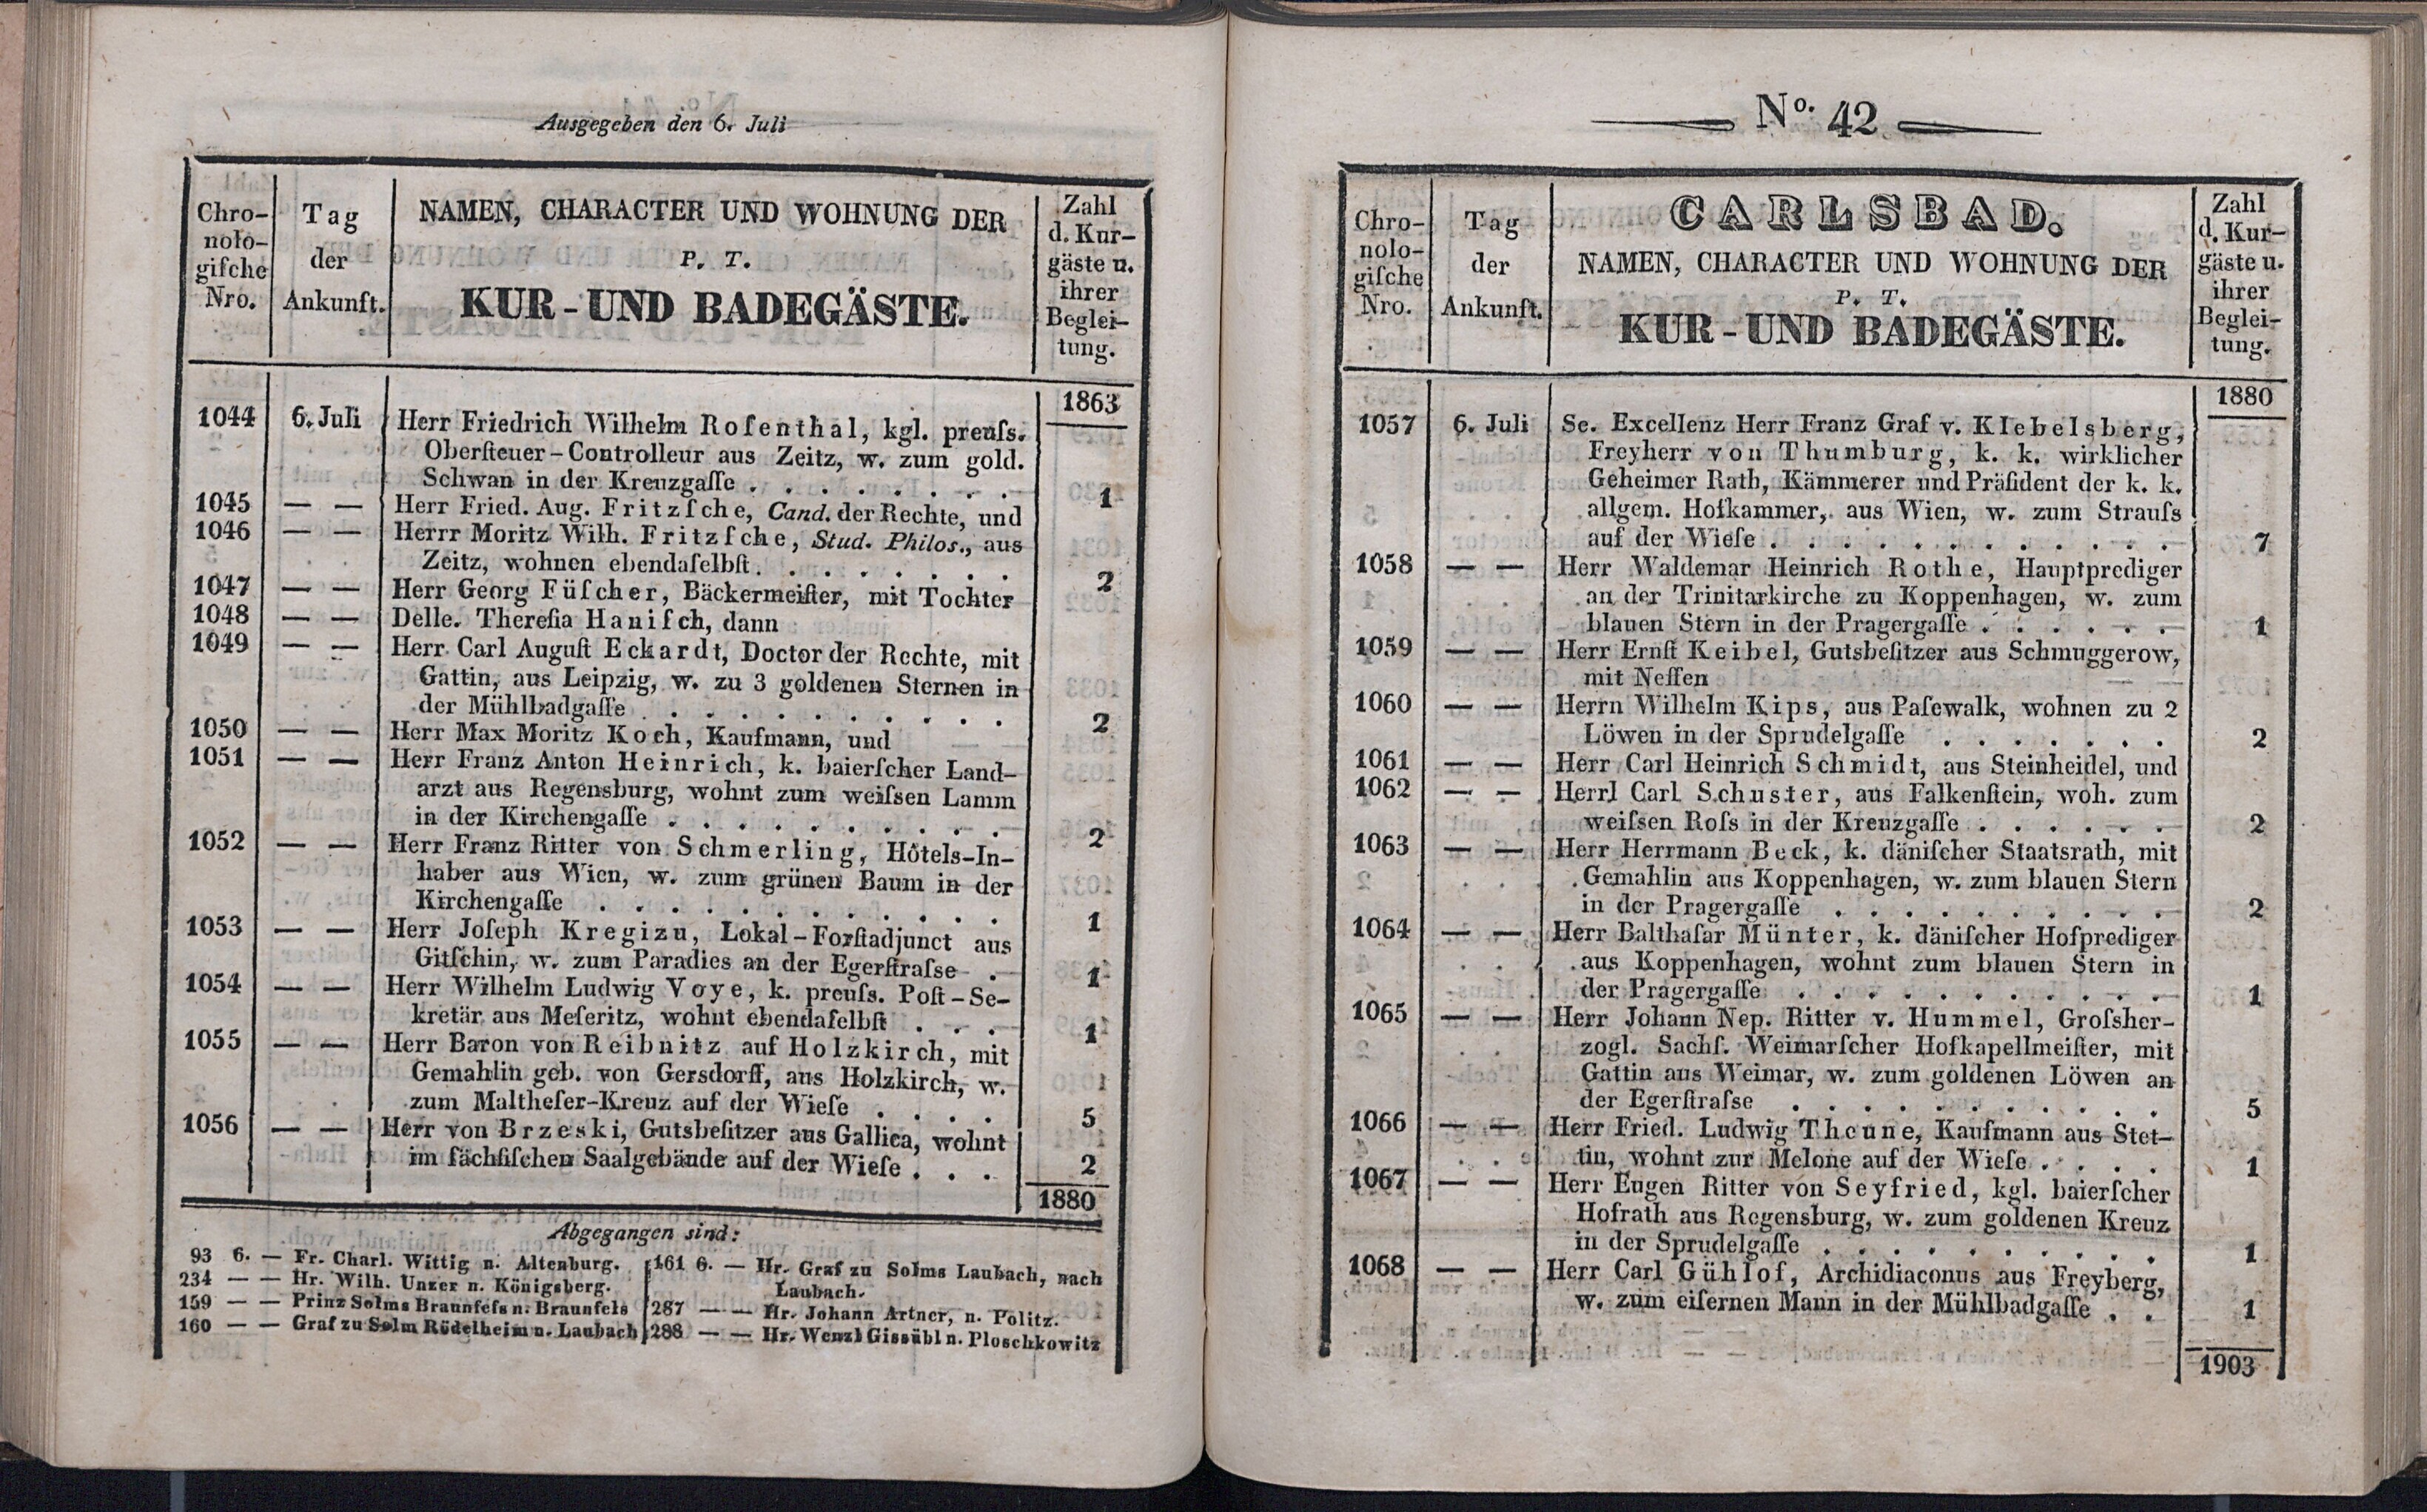 Ausgegeben den 6. Juli
Chro-
nolo-
giſche
Nro.
Tag
der
Ankunft.
NAMEN, CHARACTER UND WOHNUNG DER
P. T.
KUR-UND BADEGÄSTE.
Zahl
d. Kur-
gäste u.
ihrer
Beglei-
tung.
1863
1044 6. Juli Herr Friedrich Wilhelm Roſenthal, kgl. preuſs.
Oberſteuer-Controlleur aus Zeitz, w. zum gold.
Schwan in der Kreuzgaſſe . . . . . . . . . 1
1045 — — Herr Fried. Aug. Fritzſche, Cand. der Rechte, und
1046 — — Herrr Moritz Wilh. Fritzſche, Stud. Philos., aus
Zeitz, wohnen ebendaſelbſt . . . . . . . . 2
1047 — — Herr Georg Füſcher, Bäckermeiſter, mit Tochter
1048 — — Delle. Thereſia Haniſch, dann
1049 — — Herr Carl Auguſt Eckardt, Doctor der Rechte, mit
Gattin, aus Leipzig, w. zu 3 goldenen Sternen in
der Mühlbadgaſſe . . . . . . . . . . . 2
1050 — — Herr Max Moritz Koch, Kaufmann, und
1051 — — Herr Franz Anton Heinrich, k. baierſcher Land-
arzt aus Regensburg, wohnt zum weiſsen Lamm
in der Kirchengaſſe . . . . . . . . . . 2
1052 — — Herr Franz Ritter von Schmerling, Hôtels-In-
haber aus Wien, w. zum grünen Baum in der
Kirchengaſſe . . . . . . . . . . . . 1
1053 — — Herr Joſeph Kregizu, Lokal-Forſtadjunct aus
Gitſchin, w. zum Paradies an der Egerſtraſse . 1
1054 — — Herr Wilhelm Ludwig Voye, k. preuſs. Poſt-Se-
kretär aus Meſeritz, wohnt ebendaſelbſt . . . 1
1055 — — Herr Baron von Reibnitz auf Holzkirch, mit
Gemahlin geb. von Gersdorff, aus Holzkirch, w.
zum Maltheſer-Kreuz auf der Wieſe . . . . 5
1056 — — Herr von Brzeski, Gutsbeſitzer aus Gallica, wohnt
im ſächſiſchen Saalgebäude auf der Wieſe . . . 2
1880
Abgegangen sind:
93 6. — Fr. Charl. Wittig n. Altenburg.
234 — — Hr. Wilh. Unzer n. Königsberg.
159 — — Prinz Solms Braunfels n. Braunfels
160 — — Graf zu Solm Rödelheim n. Laubach
161 6. — Hr. Graf zu Solms Laubach, nach
Laubach.
287 — — Hr. Johann Artner, n. Politz.
288 — — Hr. Wenzl Gissübl n. Ploschkowitz
No. 42
Chro-
nolo-
giſche
Nro.
Tag
der
Ankunft.
CARLSBAD.
NAMEN, CHARACTER UND WOHNUNG DER
P. T.
KUR-UND BADEGÄSTE.
Zahl
d. Kur-
gäste u.
ihrer
Beglei-
tung.
1880
1057 6. Juli Se. Excellenz Herr Franz Graf v. Klebelsberg,
Freyherr von Thumburg, k. k. wirklicher
Geheimer Rath, Kämmerer und Präſident der k. k.
allgem. Hofkammer, aus Wien, w. zum Strauſs
auf der Wieſe . . . . . . . . . . . . 7
1058 — — Herr Waldemar Heinrich Rothe, Hauptprediger
an der Trinitarkirche zu Koppenhagen, w. zum
blauen Stern in der Pragergaſſe . . . . . . 1
1059 — — Herr Ernſt Keibel, Gutsbeſitzer aus Schmuggerow,
mit Neffen
1060 — — Herrn Wilhelm Kips, aus Paſewalk, wohnen zu 2
Löwen in der Sprudelgaſſe . . . . . . . 2
1061 — — Herr Carl Heinrich Schmidt, aus Steinheidel, und
1062 — — Herrl Carl Schuster, aus Falkenſtein, woh. zum
weiſsen Roſs in der Kreuzgaſſe . . . . . . 2
1063 — — Herr Herrmann Beck, k. däniſcher Staatsrath, mit
Gemahlin aus Koppenhagen, w. zum blauen Stern
in der Pragergaſſe . . . . . . . . . . 2
1064 — — Herr Balthaſar Münter, k. däniſcher Hofprediger
aus Koppenhagen, wohnt zum blauen Stern in
der Pragergaſſe . . . . . . . . . . . 1
1065 — — Herr Johann Nep. Ritter v. Hummel, Groſsher-
zogl. Sachſ. Weimarſcher Hofkapellmeiſter, mit
Gattin aus Weimar, w. zum goldenen Löwen an
der Egerſtraſse . . . . . . . . . . . 5
1066 — — Herr Fried. Ludwig Theune, Kaufmann aus Stet-
tin, wohnt zur Melone auf der Wieſe . . . . 1
1067 — — Herr Eugen Ritter von Seyfried, kgl. baierſcher
Hofrath aus Regensburg, w. zum goldenen Kreuz
in der Sprudelgaſſe . . . . . . . . . . 1
1068 — — Herr Carl Gühlof, Archidiaconus aus Freyberg,
w. zum eiſernen Mann in der Mühlbadgaſſe . . 1
1903